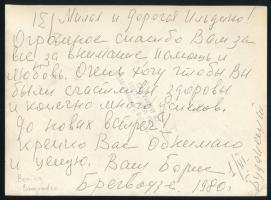 15/ Милая и дорогая Ильдико!
Огромное спасибо Вам за
всё за внимание помощь и
любовь. Очень хочу чтобы Вы
были счастливы здоровы
и конечно много успехов.
До новых встреч!
Крепко Вас Обнимаю
и целую. Ваш Борис
1980.
Будапешт